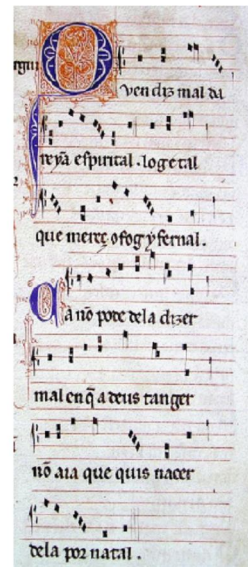 Quen diz mal da
reyã espirital . loge tal
que mereç o fog yfernal .
Ca nõ pode dela dizer
mal en q̃ a deus tanger
nõ aia que quis nacer
dela por natal .